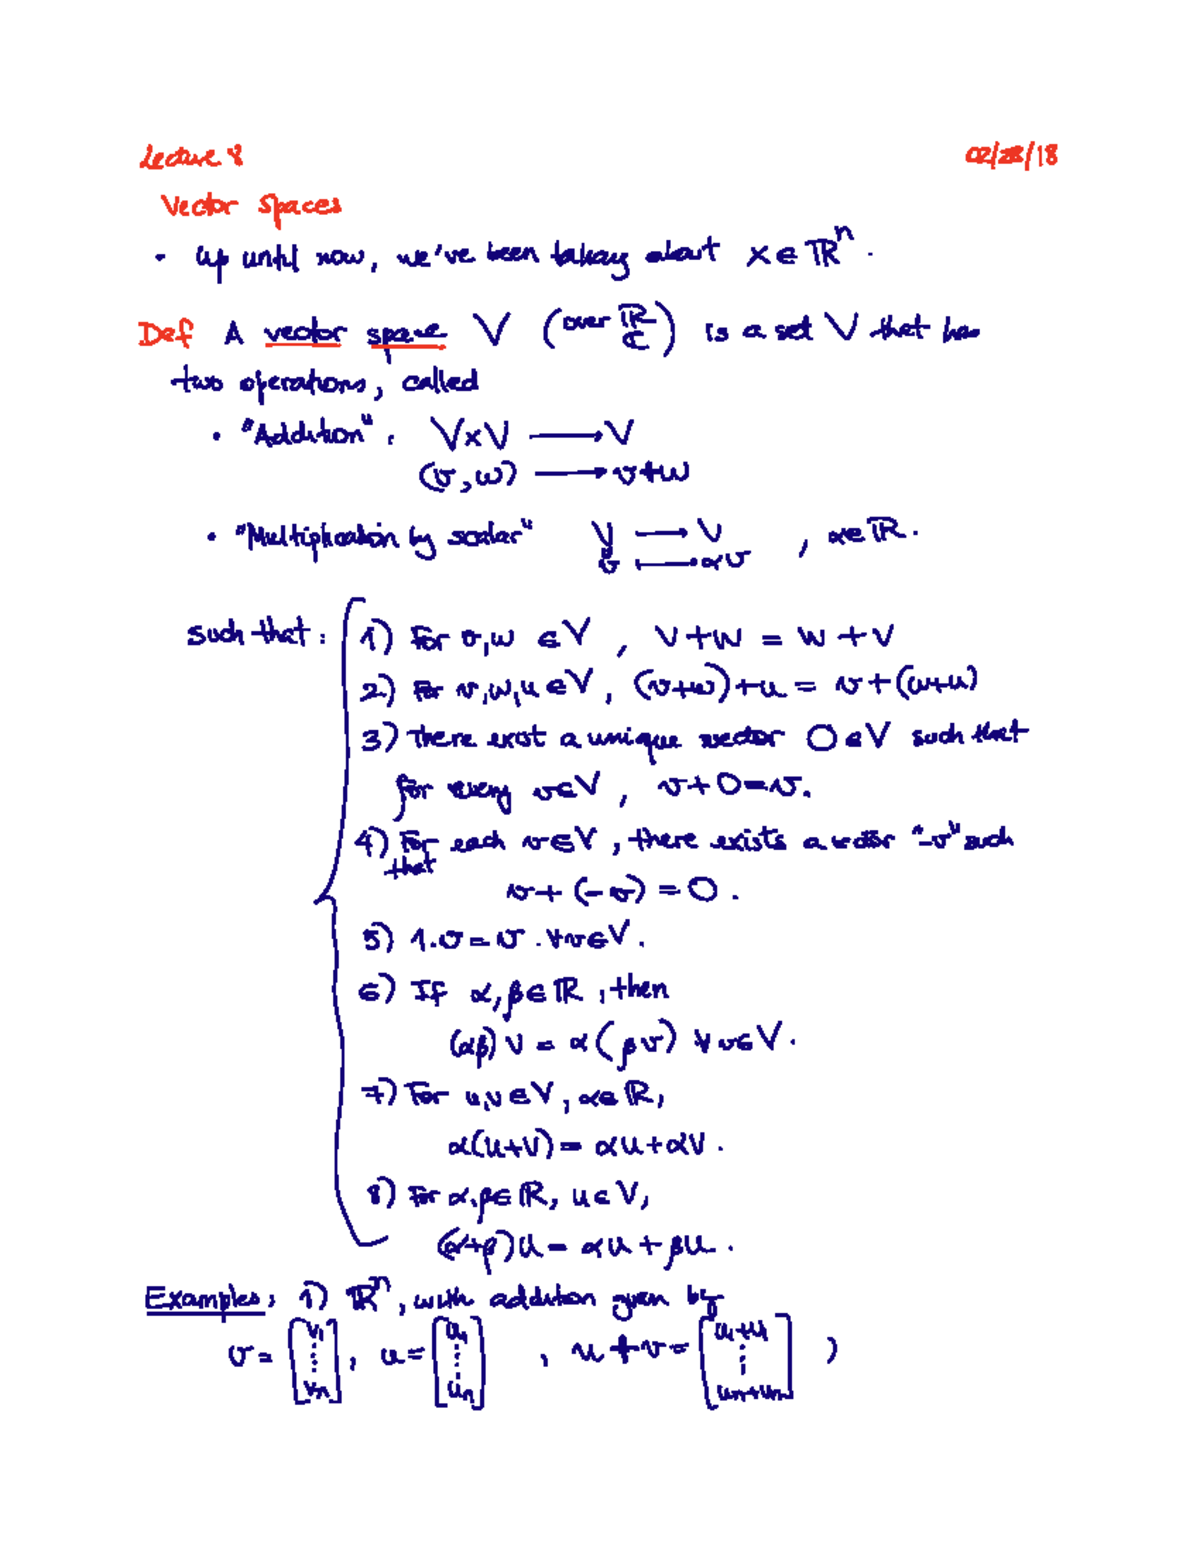 Lecture 8 02/28/18
Vector Spaces
• Up until now, we've been talking about x ∈ ℝⁿ.
Def A vector space V (over ℝ/ℂ) is a set V that has
two operations, called
• "Addition": V×V ⟶ V
(v, w) ⟶ v+w
• "Multiplication by scalar" V ⟶ V , α∈ℝ.
v ⟼ αv
such that: 1) For v,w ∈ V , v+w = w+v
2) For v,w,u ∈ V , (v+w)+u = v+(w+u)
3) There exist a unique vector O ∈ V such that
for every v∈V , v+O=v.
4) For each v∈V , there exists a vector "-v" such
that
v+(-v) = O.
5) 1·v = v . ∀v∈V.
6) If α,β∈ℝ , then
(αβ)v = α(βv) ∀v∈V.
7) For u,v ∈ V, α∈ℝ,
α(u+v) = αu+αv.
8) For α,β∈ℝ, u∈V,
(α+β)u = αu+βu.
Examples: 1) ℝⁿ, with addition given by
v = [v₁ ⋮ vₙ], u = [u₁ ⋮ uₙ] , u+v =